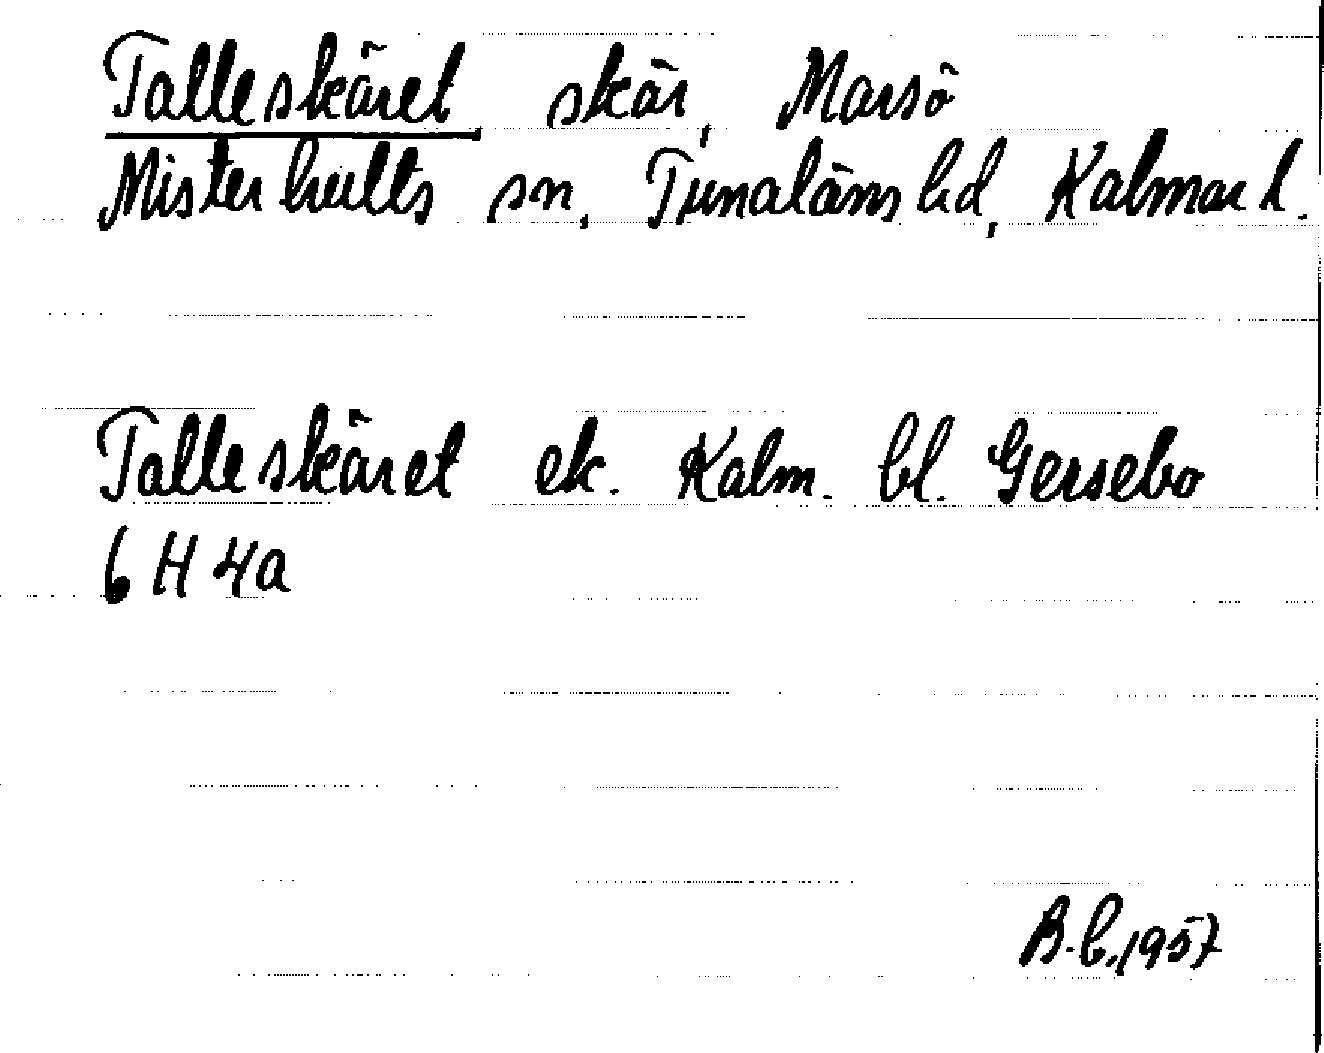 Talleskäret skär, Marsö
Misterhults sn, Tunaläns hd, Kalmar l.
Talleskäret ek. Kalm. bl. Gersebo
6 H 4a
B.C. 1957